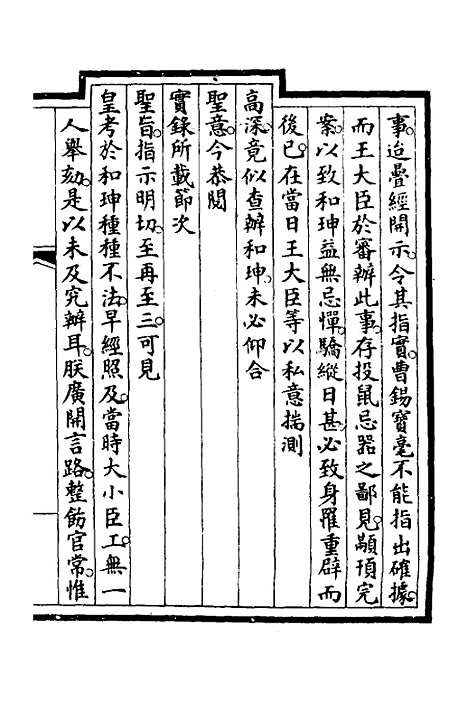 事。迨疊經開示。令其指實。曹錫寶毫不能指出確據。
而王大臣於審辦此事。存投鼠忌器之鄙見。顢頇完
案。以致和珅益無忌憚。驕縱日甚。必致身罹重辟而
後已。在當日王大臣等以私意揣測
高深。竟似查辦和珅。未必仰合
聖意。今恭閱
實錄所載節次
聖旨。指示明切。至再至三。可見
皇考於和珅種種不法。早經照及。當時大小臣工。無一
人舉劾。是以未及究辦耳。朕廣開言路。整飭官常。惟